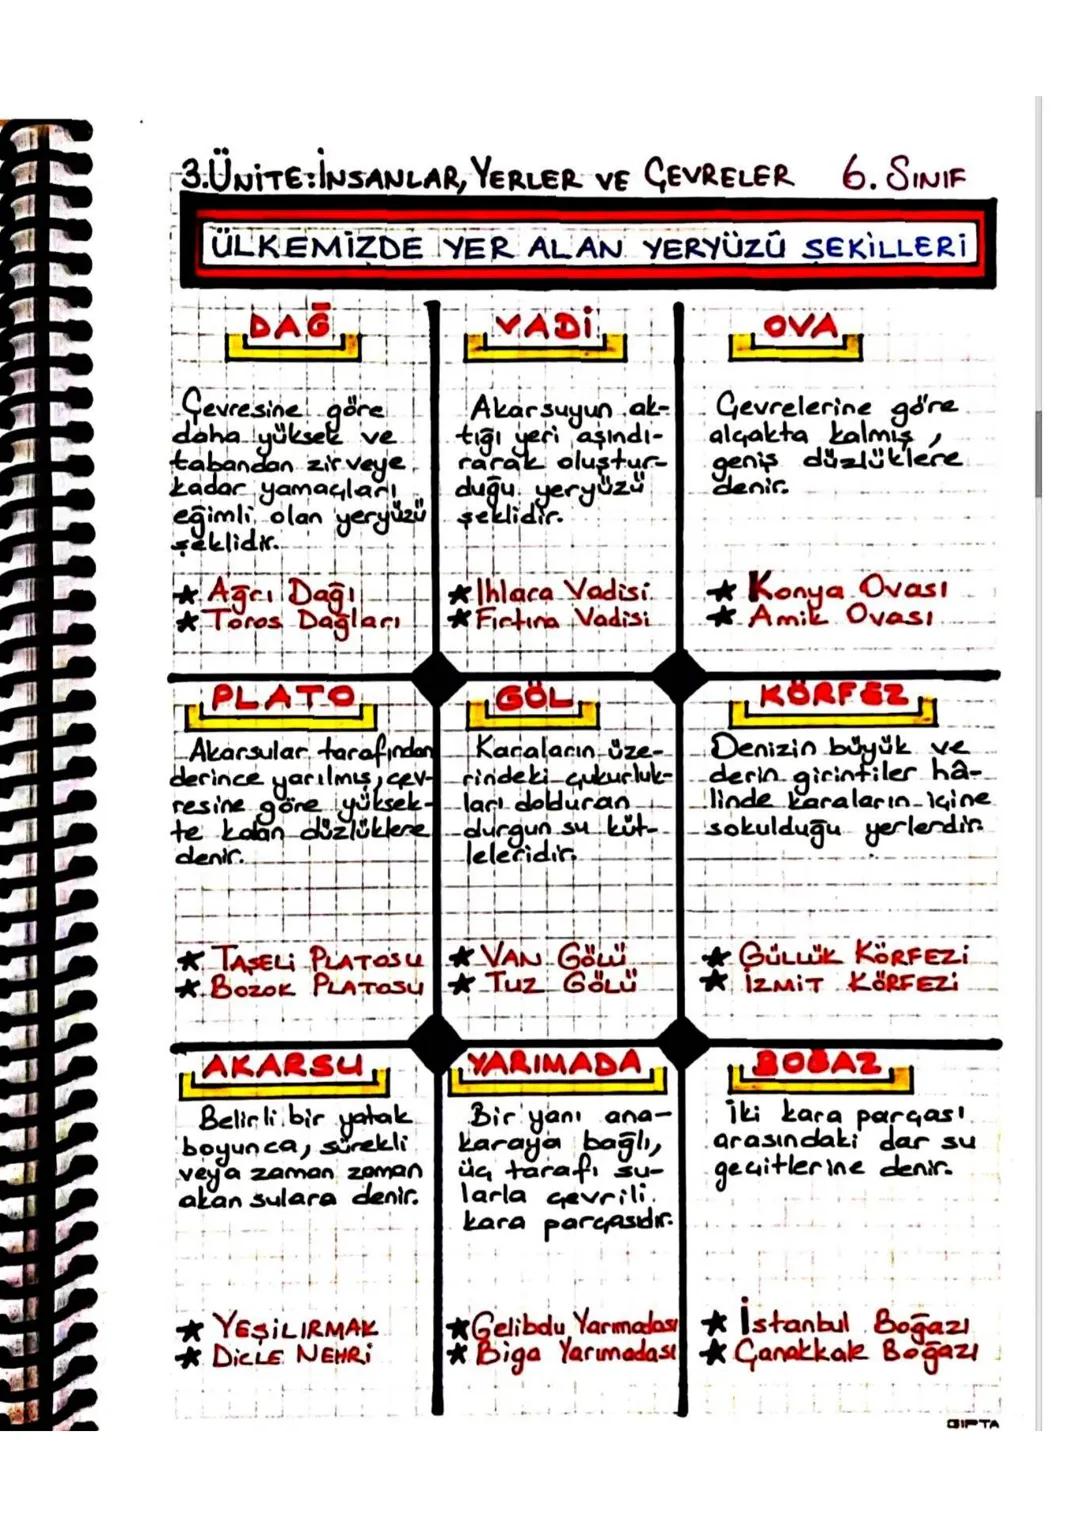 3.ÜNİTE:İNSANLAR, YERLER VE ÇEVRELER 6. SINIF
ÜLKEMİZDE YER ALAN YERYÜZÜ ŞEKİLLERİ
DAĞ
Çevresine göre
daha yüksek ve
tabandan zirveye
kadar yamaçları
eğimli olan yeryüzü
şeklidir.
★ Ağrı Dağı
★ Toros Dağları
VADİ
Akarsuyun ak-
tığı yeri aşındı-
rarak oluştur-
duğu yeryüzü
şeklidir.
★ Ihlara Vadisi
★ Fırtına Vadisi
OVA
Çevrelerine göre
alçakta kalmış,
geniş düzlüklere
denir.
★ Konya Ovası
★ Amik Ovası
PLATO
Akarsular tarafından
derince yarılmış, çev-
resine göre yüksek-
te kalan düzlüklere
denir.
★ TAŞELİ PLATOSU
★ BOZOK PLATOSU
GÖL
Karaların üze-
rindeki çukurluk-
ları dolduran
durgun su küt-
leleridir.
★ VAN GÖLÜ
★ TUZ GÖLÜ
KÖRFEZ
Denizin büyük ve
derin girintiler hâ-
linde karaların içine
sokulduğu yerlerdir.
★ GÜLLÜK KÖRFEZİ
★ İZMİT KÖRFEZİ
AKARSU
Belirli bir yatak
boyunca, sürekli
veya zaman zaman
akan sulara denir.
★ YEŞİLIRMAK
★ DİCLE NEHRİ
YARIMADA
Bir yanı ana-
karaya bağlı,
üç tarafı su-
larla çevrili
kara parçasıdır.
★ Gelibolu Yarımadası
★ Biga Yarımadası
BOĞAZ
İki kara parçası
arasındaki dar su
geçitlerine denir.
★ İstanbul Boğazı
★ Çanakkale Boğazı
GIPTA